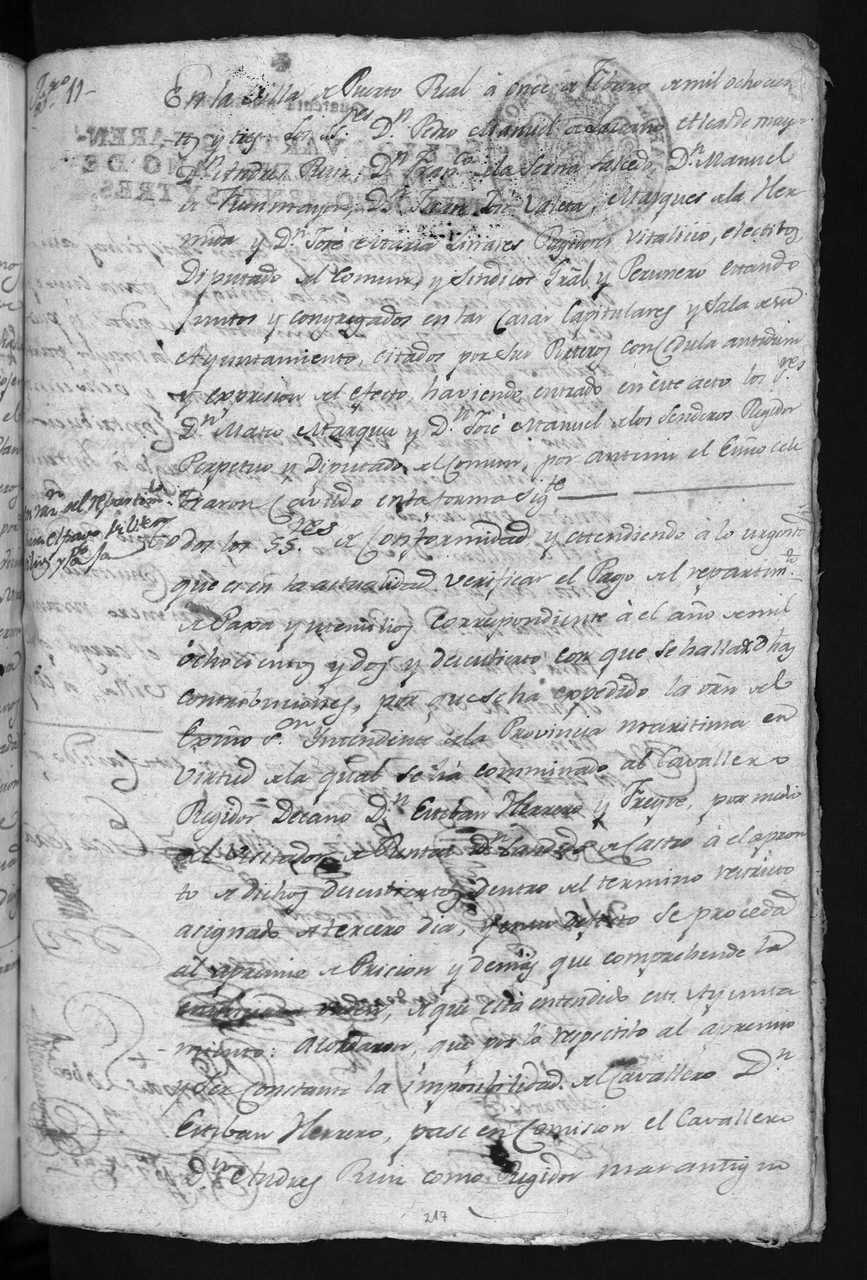 En la Villa de Puerto Real à once de Febrero de mil ochocien
tos y tres: los S.res D.n Pedro Manuel de
el Alcalde mayor
D.n Andres Ruiz, D.n Fran.co de la Serna Salcedo, D.n Manuel
de D.n Juan Jph Valera, Marques de la Her
mida y D.n José Maria Linares Regidores Vitalicio, electibos,
Diputado del Comun, y Sindicos Gral y Perzonero estando
juntos y congregados en las Casas Capitulares y Sala de su
Ayuntamiento, citados por sus Porteros con Cedula antediem
y expresion del efecto, haviendo entrado en este acto los S.res
D.n Mateo Marquez y D.n José Manuel de los Senderos Regidor
Perpetuo y Diputado del Comun, por ante mi el Esno cele
braron Cavildo en la forma sig.te
Todos los SS.res de Conformidad y atendiendo à lo urgente
que es en la actualidad verificar el Pago del repartim.to
de Paxa y utensilios correspondiente à el año de mil
ochocientos y dos y descubierto con que se hallan dhas
contribuciones, por que se ha expedido la orn del
Exmo S.or Intendente de la Provincia maritima en
virtud de la qual se há comminado al Cavallero
Regidor Decano D.n Esteban Herrero y por medio
del Visitador de Rentas D.n de Castro à el apron
to de dichos descubiertos dentro del termino restricto
asignado de tercero dia, y en su defecto se procederá
al apremio de Pricion y demas que comprehende la
orden, de que está entendido este Ayunta
miento: Acordaron, que por lo respectibo al apremio
y ser Constante la imposibilidad del Cavallero D.n
Esteban Herrero, pase en Comision el Cavallero
D.n Andres Ruiz como Regidor mas antiguo
217
11
del repartim.to